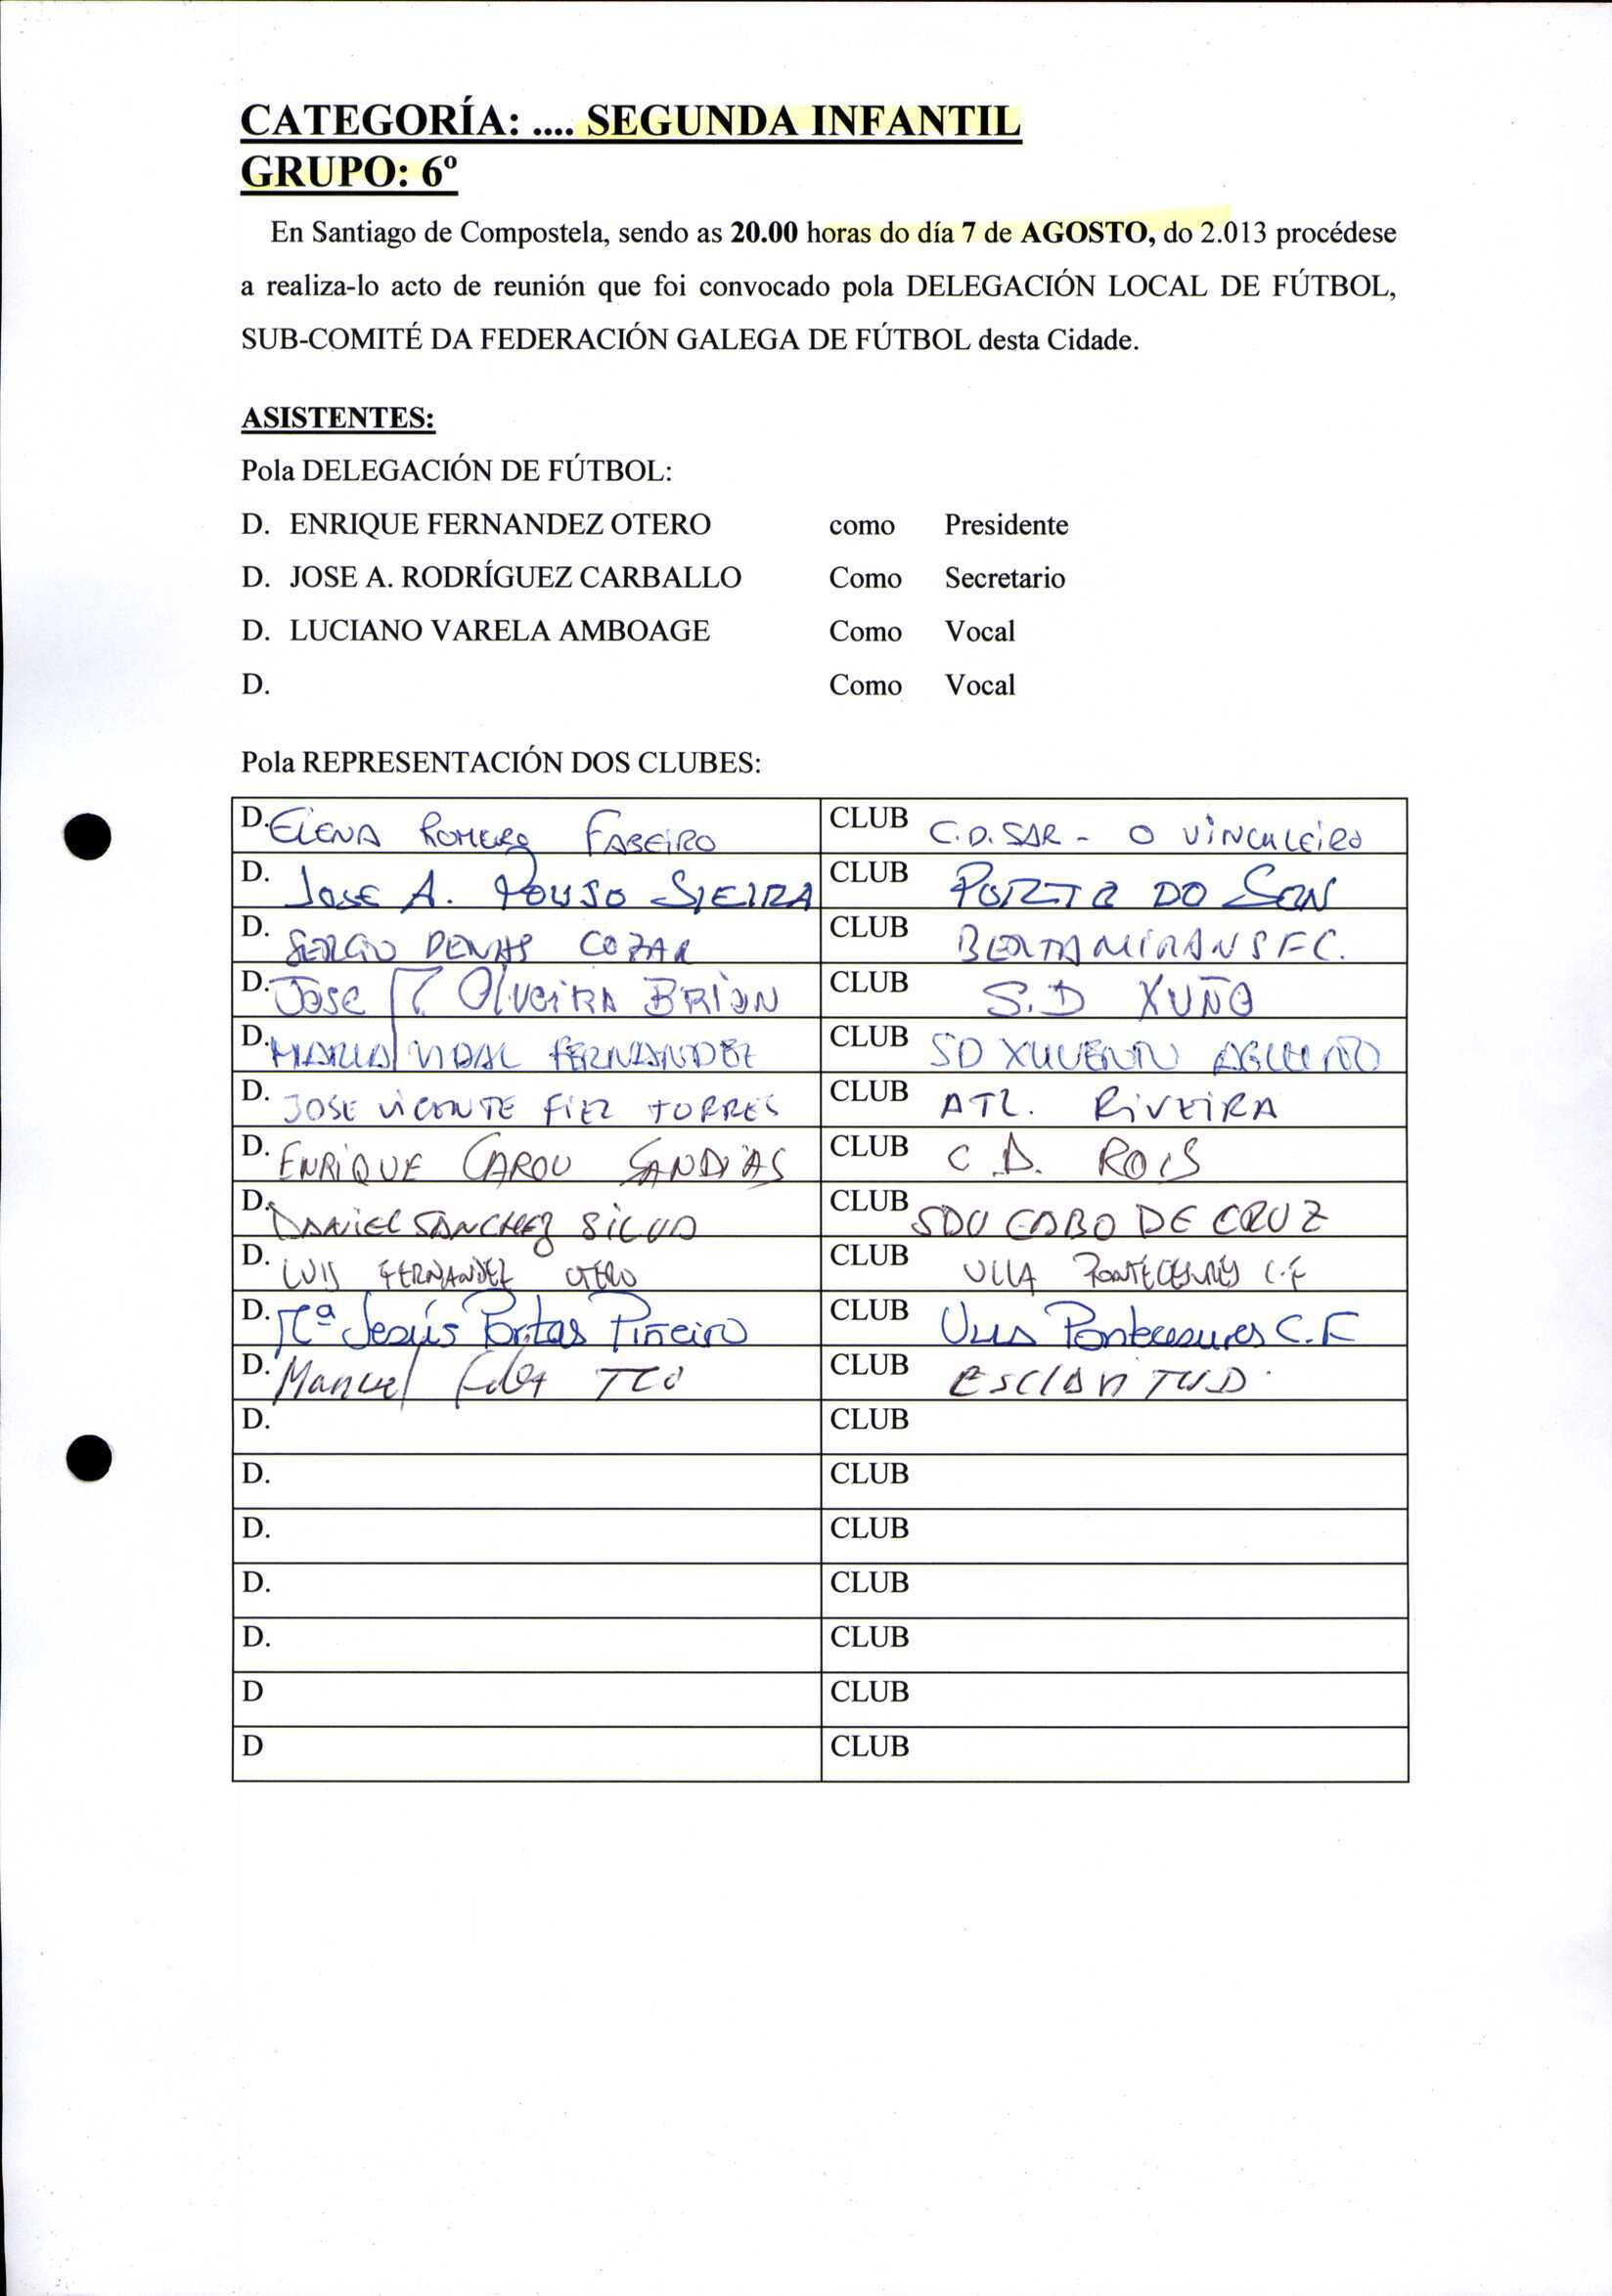 CATEGORÍA: .... SEGUNDA INFANTIL
GRUPO: 6º
En Santiago de Compostela, sendo as 20.00 horas do día 7 de AGOSTO, do 2.013 procédese
a realiza-lo acto de reunión que foi convocado pola DELEGACIÓN LOCAL DE FÚTBOL,
SUB-COMITÉ DA FEDERACIÓN GALEGA DE FÚTBOL desta Cidade.
ASISTENTES:
Pola DELEGACIÓN DE FÚTBOL:
D. ENRIQUE FERNANDEZ OTERO como Presidente
D. JOSE A. RODRÍGUEZ CARBALLO Como Secretario
D. LUCIANO VARELA AMBOAGE Como Vocal
D. Como Vocal
Pola REPRESENTACIÓN DOS CLUBES:
D. ELENA ROMERO FABEIRO CLUB C.D. SAR - O VINCULEIRO
D. JOSE A. POUSO SIEIRA CLUB PORTO DO SON
D. SERGIO DENAS COZAR CLUB BERTAMIRANS F.C.
D. JOSE Mª OLVEIRA BRION CLUB S.D XUÑO
D. MARIA VIDAL FERNANDEZ CLUB SD XUVENTU AGUIÑO
D. JOSE VICENTE FIEL TORRES CLUB ATL. RIVEIRA
D. ENRIQUE CAROU SANDIAS CLUB C D. ROIS
D. DANIEL SANCHEZ SILVA CLUB SDU CABO DE CRUZ
D. LUIS FERNANDEZ OTERO CLUB ULLA PONTECESURES C.F
D. Mª Jesús Portas Piñeiro CLUB Ulla Pontecesures C.F
D. Manuel TCO CLUB ESCLAVITUD.
D. CLUB
D. CLUB
D. CLUB
D. CLUB
D. CLUB
D CLUB
D CLUB